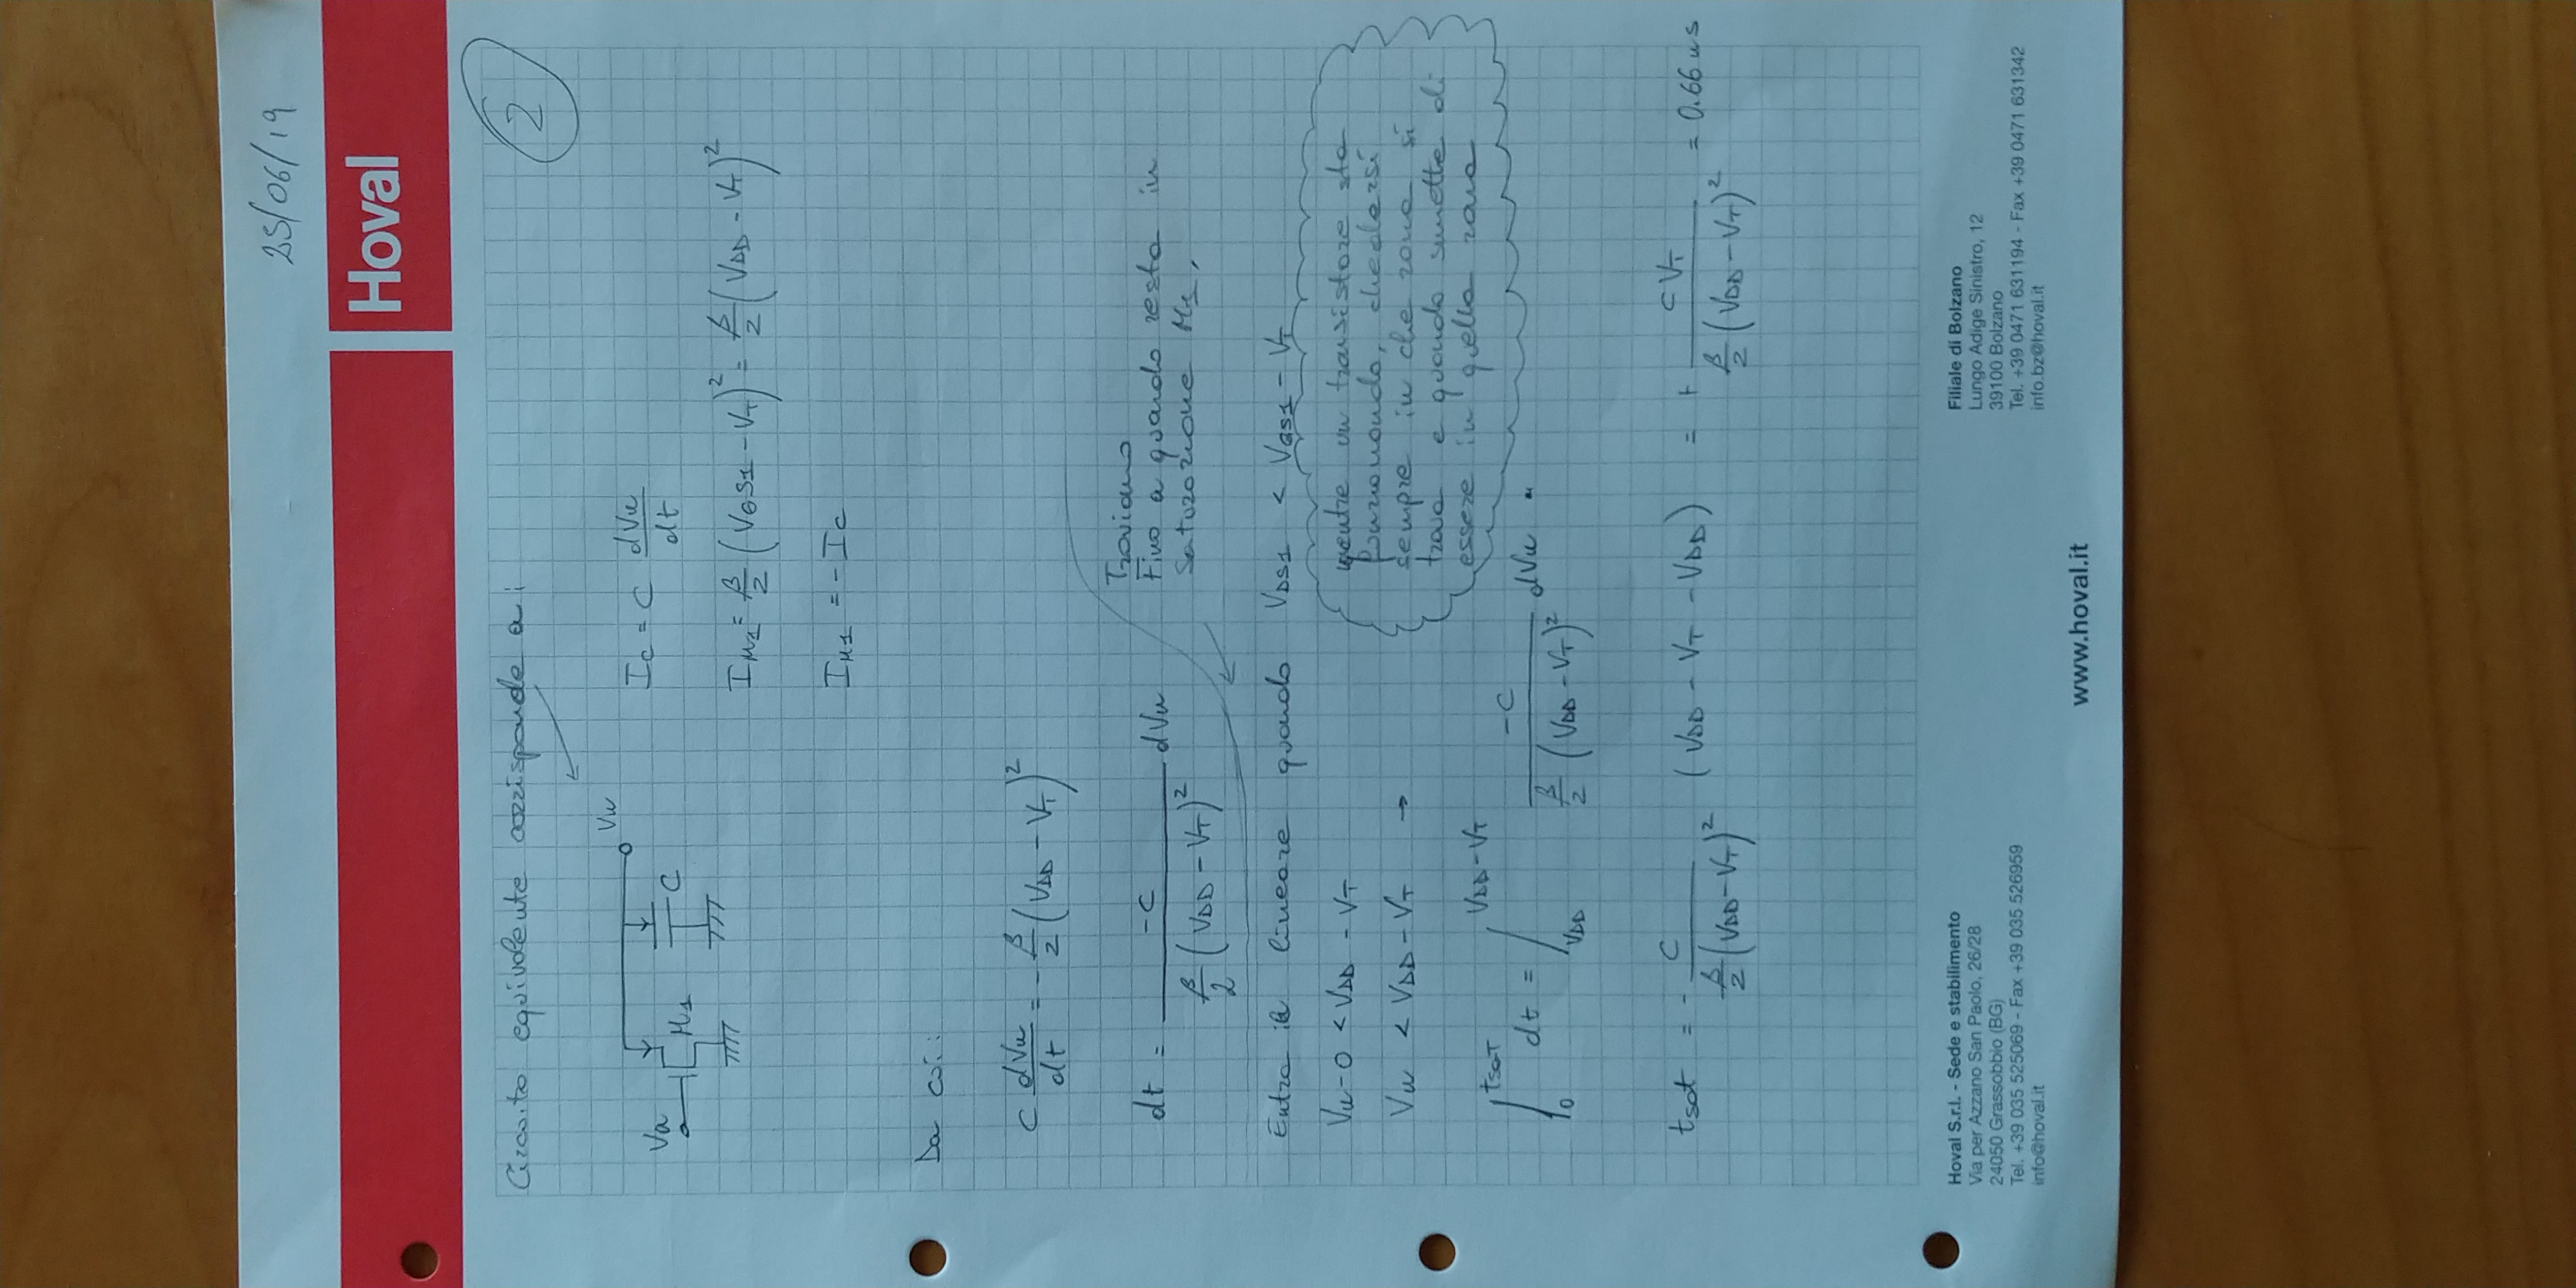 25/06/19
Hoval
2
Circuito equivalente corrisponde a:
Va
M1
C
Vu
Ic = C dVu/dt
IM1 = β/2 (VGS1 - VT)² = β/2 (VDD - VT)²
IM1 = - Ic
Da cui:
C dVu/dt = - β/2 (VDD - VT)²
dt = -C / (β/2 (VDD - VT)²) dVu
Troviamo
Fino a quando resta in
saturazione M1,
Entra in lineare quando VDS1 < VGS1 - VT
Vu - 0 < VDD - VT
Vu < VDD - VT →
mentre un transistore sta
funzionando, chiedersi
sempre in che zona si
trova e quando smette di
essere in quella zona
∫0^tsat dt = ∫VDD^VDD-VT -C / (β/2 (VDD - VT)²) dVu
tsat = - C / (β/2 (VDD - VT)²) (VDD - VT - VDD) = + C VT / (β/2 (VDD - VT)²) = 0.66 ns
Hoval S.r.l. - Sede e stabilimento
Via per Azzano San Paolo, 26/28
24050 Grassobbio (BG)
Tel. +39 035 525069 - Fax +39 035 526959
info@hoval.it
Filiale di Bolzano
Lungo Adige Sinistro, 12
39100 Bolzano
Tel. +39 0471 631194 - Fax +39 0471 631342
info.bz@hoval.it
www.hoval.it